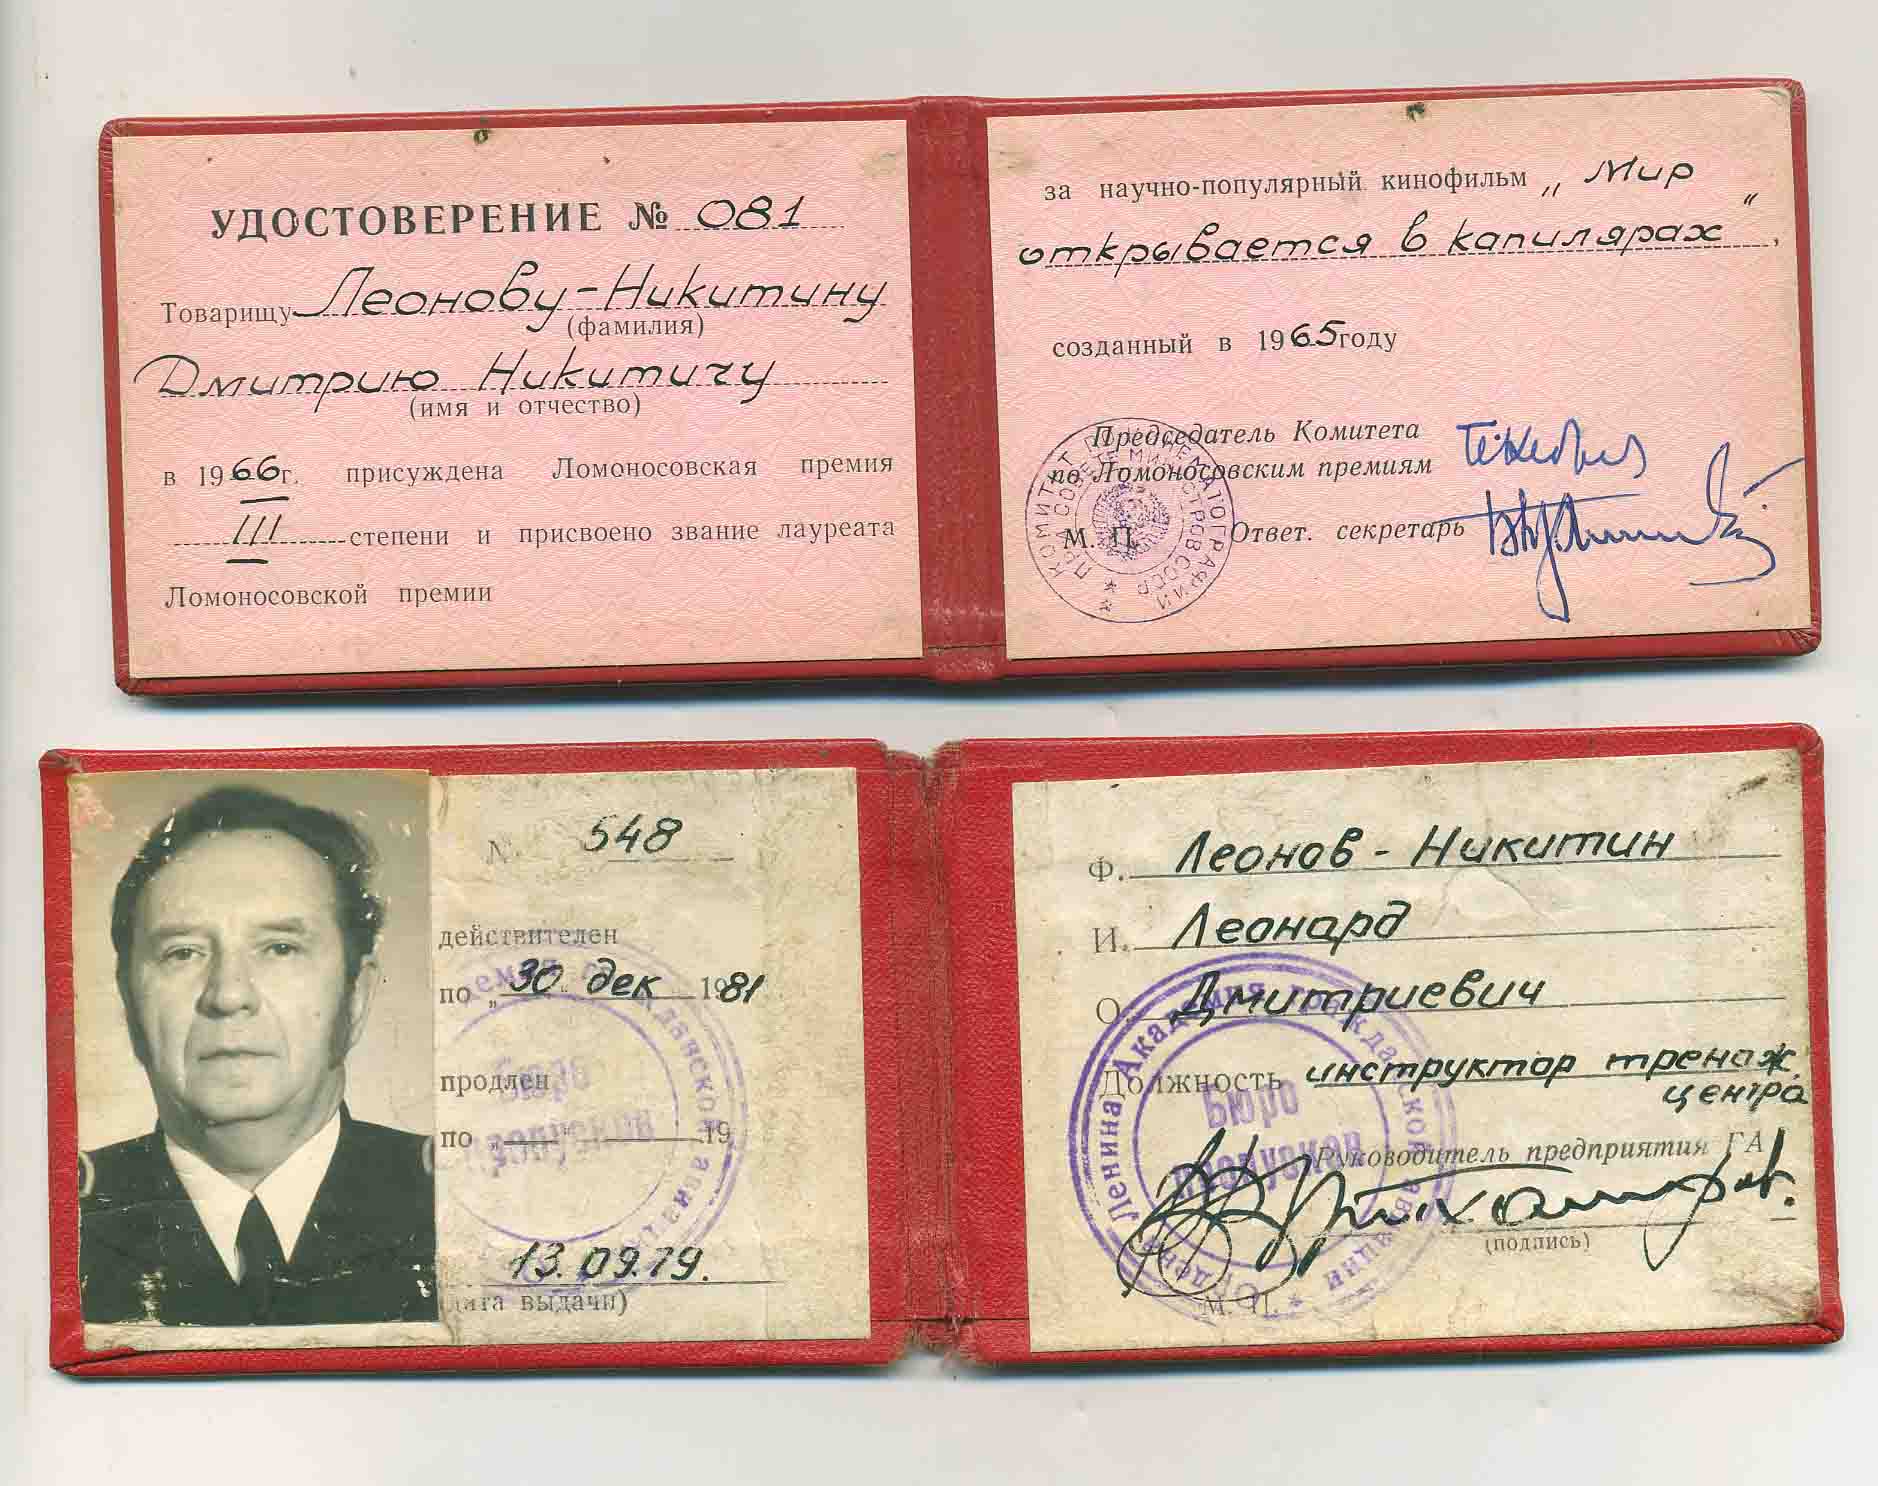 УДОСТОВЕРЕНИЕ № 081
Товарищу Леонову-Никитину
(фамилия)
Дмитрию Никитичу
(имя и отчество)
в 1966г. присуждена Ломоносовская премия
III степени и присвоено звание лауреата
Ломоносовской премии
за научно-популярный кинофильм „Мир
открывается в капилярах“,
созданный в 1965 году
Председатель Комитета
по Ломоносовским премиям
М. П. Ответ. секретарь
КОМИТЕТ ПО КИНЕМАТОГРАФИИ
ПРИ СОВЕТЕ МИНИСТРОВ СССР
№ 548
действителен
по „30“ дек 1981
продлен
по „ “ 19
Бюро
пропусков
13.09.79.
(дата выдачи)
Ф. Леонов-Никитин
И. Леонард
О. Дмитриевич
Должность инструктор тренаж.
центра
Руководитель предприятия ГА
(подпись)
М. П.
Ордена Ленина Академия гражданской авиации
Бюро
пропусков